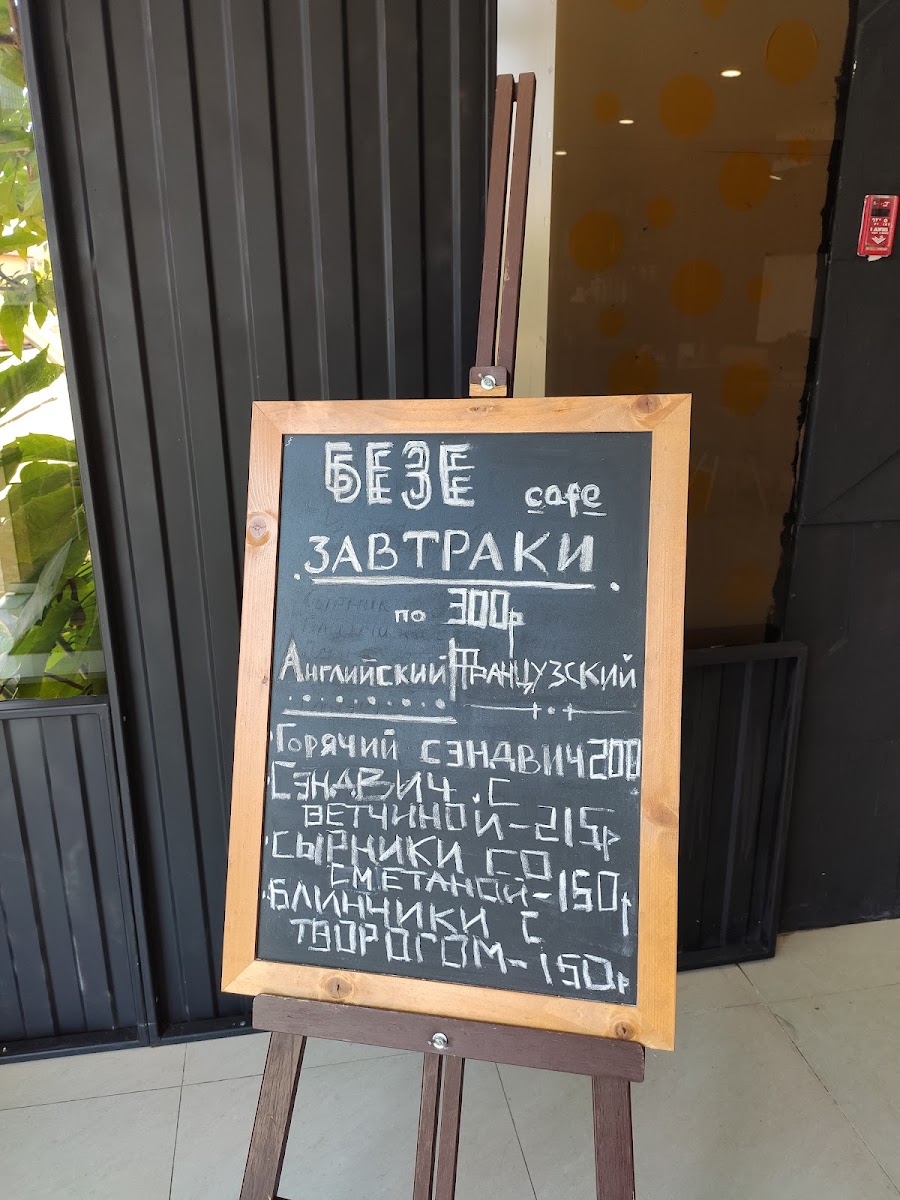 БЕЗЕ cafe
ЗАВТРАКИ
по 300р
Английский Французский
Горячий сэндвич 200
Сэндвич с
ветчиной - 215р
Сырники со
сметаной - 150р
Блинчики с
творогом - 150р